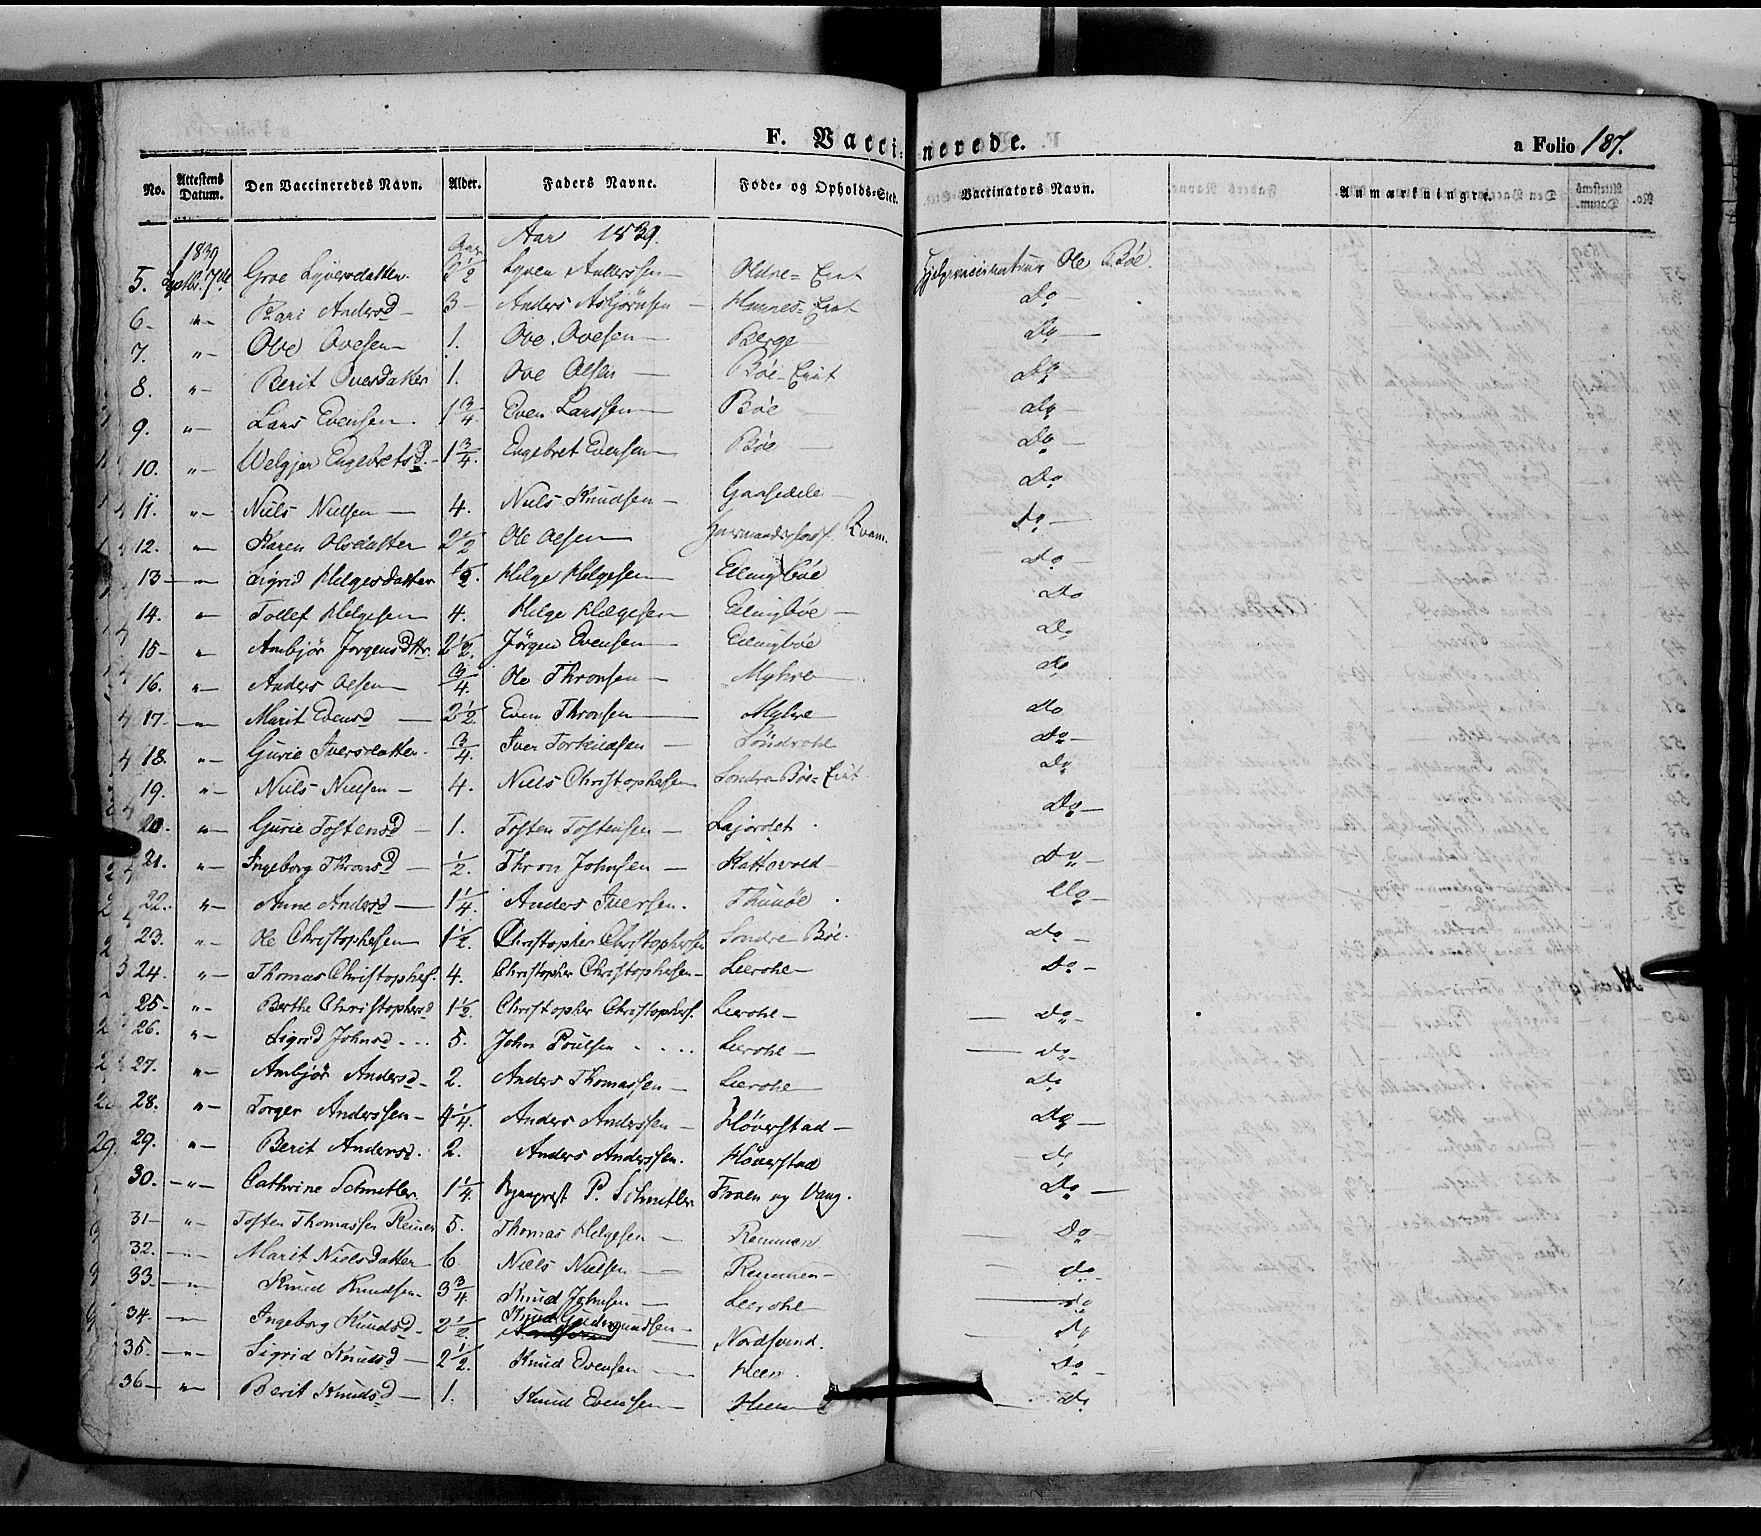 F. Vaccinerede.
a Folio 187.
No. Attestens Datum. Den Vaccineredes Navn. Alder. Faders Navne. Føde- og Opholds-Sted. Vaccinators Navn. Anmærkninger.
Aar 1839.
1839 Aar
5. Septbr. Groe Syversdatter ½ Syver Anderssen Ole Bøe.
6. " Kari Andersd 3 Anders Asbjørnsen Do
7. " Ove Ovesen 1. Ove Ovesen Berge Do
8. " Berit Oversdatter 1. Ove Olsen Bøe-Eiet Do
9. " Lars Evensen. 1 3/4 Even Larssen Bøe Do
10. " Engebretsd. 1 3/4. Engebret Evensen Bøe Do
11. " Niels Nielsen 4. Niels Knudsen Gaasedele Do
12. " Karen Olsdatter 2 1/2 Ole Olsen Qvam. Do
13 " Sigrid Helgesdatter 1/2. Helge Helgesen Ellingbøe Do
14. " Tollef Helgesen 4. Helge Helgesen Ellingbøe Do
15 " Ambjør Jørgensdttr. 2 1/2. Jørgen Evensen Ellingbøe Do
16. " Anders Olsen 3/4. Ole Thronsen Myhre Do
17. " Marit Evensd 2 1/2 Even Thronsen Myhre Do
18. " Gurie Iversdatter. 3/4. Iver Torkildsen Søndrohe Do
19. " Niels Nielsen 4. Niels Christophersen Søndre Bøe-Eiet Do
20. " Gurie Tostensd 1. Tosten Tostensen Lajordet. Do
21. " Ingeborg Thronsd 1/2. Thron Johnsen Kattevold Do
22. " Anne Andersd 1 1/4. Anders Iversen. Do
23. " Ole Christophersen 1 1/2. Christopher Christophersen Søndre Bøe. Do
24. " Thomas Christophers. 4. Christopher Christophersen Leerohe Do
25. " Berthe Christophersd 1 1/2. Christopher Christophers. Leerohe Do
26. " Sigrid Johnsd 5. John Poulsen Leerohe Do
27. " Ambjør Andersd 2. Anders Thomassen Leerohe Do
28. " Torger Anderssen 4 1/4. Anders Anderssen Høverstad Do
29. " Berit Andersd. 2. Anders Anderssen. Høverstad Do
30. " Cathrine Schnitler 1 1/4. P. Schnitler Froen og Vang. Do
31 " Tosten Thomassen Remmen 5. Thomas Helgesen Remmen Do
32. " Marit Nielsdatter 6 Niels Nielsen Remmen Do
33 " Knud Knudsen 3 3/4 Knud Johnsen Leerohe Do
34. " Ingeborg Knudsd 2 1/2. Knud Gudmundsen Nordsvend. Do
35. " Sigrid Knudsd 2 1/2. Knud Evensen Heen. Do
36 " Berit Knudsd 1. Knud Evensen Heen Do